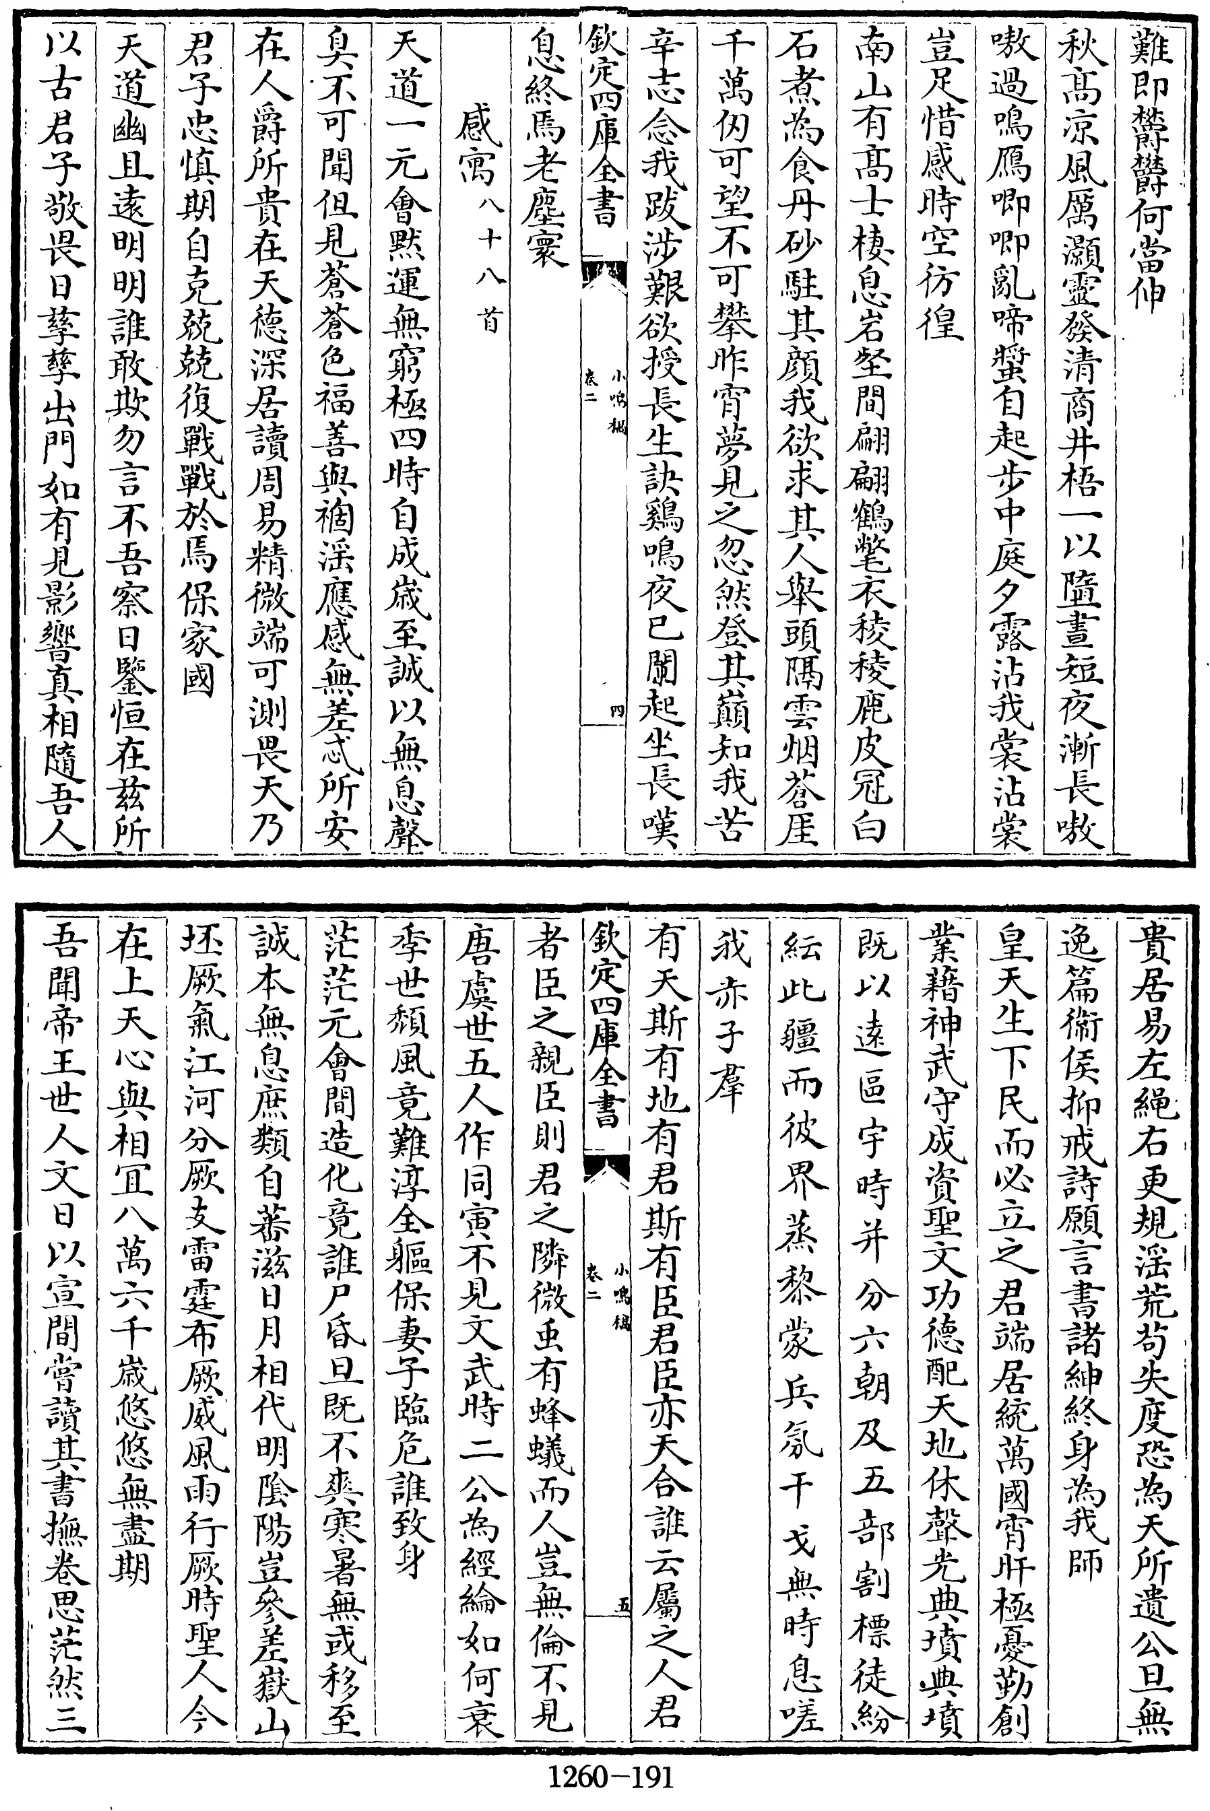 難即欝欝何當伸
秋髙凉風厲灝靈發清商井梧一以隨晝短夜漸長嗷
嗷過鳴鴈唧唧亂啼螿自起步中庭夕露沾我裳沾裳
豈足惜感時空彷徨
南山有髙士棲息岩壑間翩翩鶴氅衣稜稜鹿皮冠白
石煮為食丹砂駐其顔我欲求其人舉頭隔雲烟蒼厓
千萬仭可望不可攀昨宵夢見之忽然登其巔知我苦
辛志念我跋涉艱欲授長生訣鷄鳴夜已闌起坐長嘆
欽定四庫全書
小鳴稿
卷二
四
息終焉老塵寰
感寓八十八首
天道一元會黙運無窮極四時自成歲至誠以無息聲
臭不可聞但見蒼蒼色福善與禍淫應感無差忒所安
在人爵所貴在天德深居讀周易精微端可測畏天乃
君子忠慎期自克兢兢復戰戰於焉保家國
天道幽且遠明明誰敢欺勿言不吾察日鑒恒在兹所
以古君子敬畏日孳孳出門如有見影響真相隨吾人
貴居易左繩右更規淫荒苟失度恐為天所遺公旦無
逸篇衞侯抑戒詩願言書諸紳終身為我師
皇天生下民而必立之君端居統萬國宵旰極憂勤創
業藉神武守成資聖文功德配天地休聲光典墳典墳
既以遠區宇時并分六朝及五部割標徒紛
紜此疆而彼界蒸黎蒙兵氛干戈無時息嗟
我亦子羣
有天斯有地有君斯有臣君臣亦天合誰云屬之人君
欽定四庫全書
小鳴稿
卷二
五
者臣之親臣則君之隣微虫有蜂蟻而人豈無倫不見
唐虞世五人作同寅不見文武時二公為經綸如何衰
季世頽風竟難淳全軀保妻子臨危誰致身
茫茫元會間造化竟誰尸昏旦既不爽寒暑無或移至
誠本無息庶類自蕃滋日月相代明陰陽豈參差嶽山
坯厥氣江河分厥支雷霆布厥威風雨行厥時聖人今
在上天心與相宜八萬六千歲悠悠無盡期
吾聞帝王世人文日以宣間嘗讀其書撫卷思茫然三
1260-191